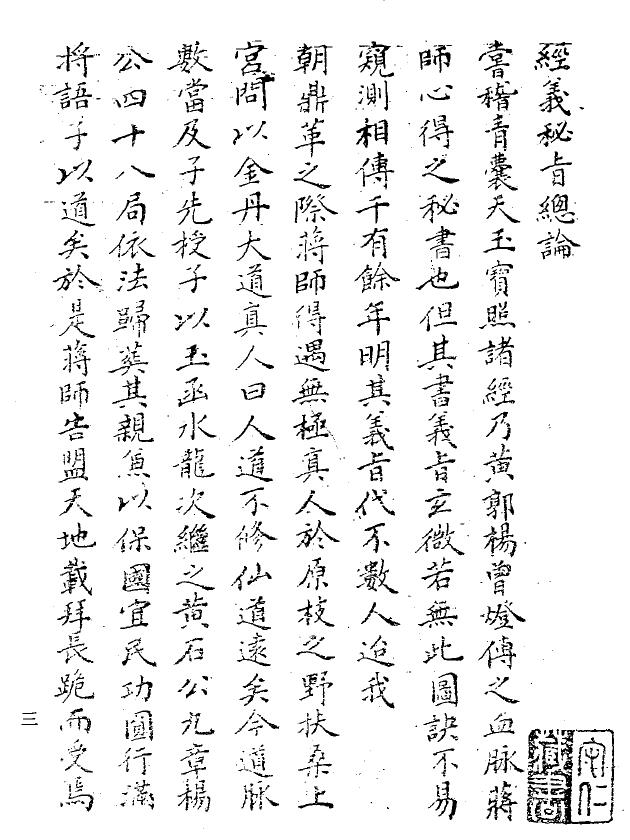 經義秘旨總論
嘗稽青囊天玉寶照諸經乃黃郭楊曾燈傳之血脉蔣
師心得之秘書也但其書義旨玄微若無此圖訣不易
窺測相傳千有餘年明其義旨代不數人迨我
朝鼎革之際蔣師得遇無極真人於原枝之野扶桑上
宮問以金丹大道真人曰人道不修仙道遠矣今道脉
數當及子先授子以玉函水龍次繼之黃石公九章楊
公四十八局依法歸葬其親兼以保國宜民功圓行滿
將語子以道矣於是蔣師告盟天地載拜長跪而受焉
三
藏書